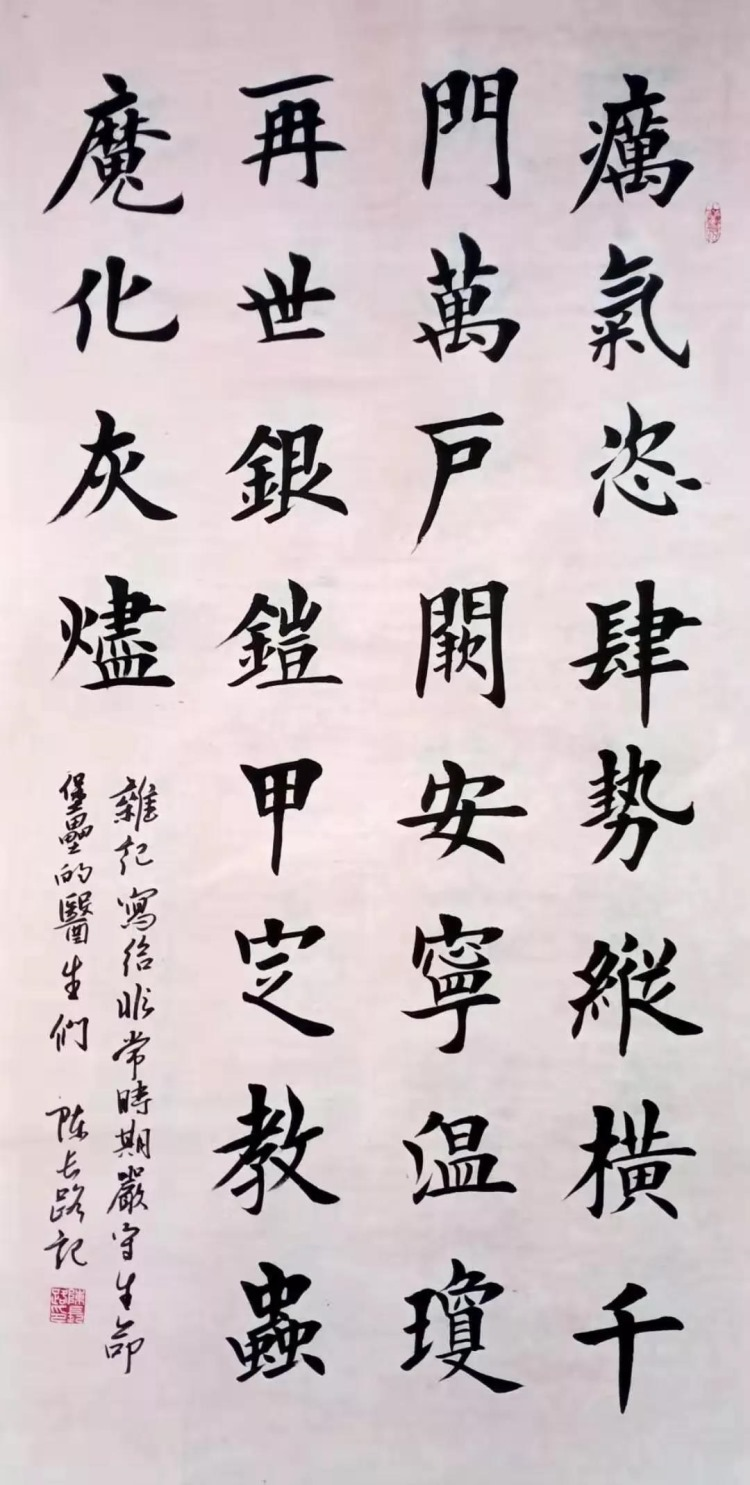 癘氣恣肆勢縱橫千
門萬戶闕安寧温瓊
再世銀鎧甲定教蟲
魔化灰燼
雜記寫給非常時期嚴守生命
堡壘的醫生們 陈长路記